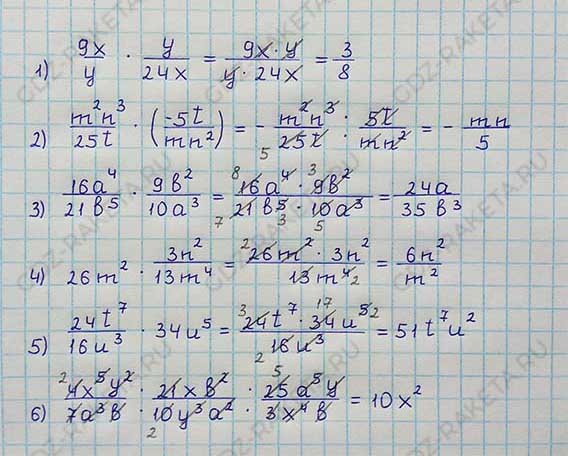 1) 9x/y · y/24x = 9x · y / y · 24x = 3/8
2) m²n³/25t · (-5t/mn²) = - m²n³/25t · 5t/mn² = - mn/5
5
3) 16a⁴/21b⁵ · 9b²/10a³ = 16a⁴ · 9b² / 21b⁵ · 10a³ = 24a/35b³
8 3
7 3 5
4) 26m² · 3n²/13m⁴ = 26m² · 3n² / 13m⁴ = 6n²/m²
2
2
5) 24t⁷/16u³ · 34u⁵ = 24t⁷ · 34u⁵ / 16u³ = 51t⁷u²
3 17 2
2
6) 4x⁵y²/7a³b · 21xb²/10y³a² · 25a⁵y/3x⁴b = 10x²
2 5
2
GDZ-RAKETA.RU